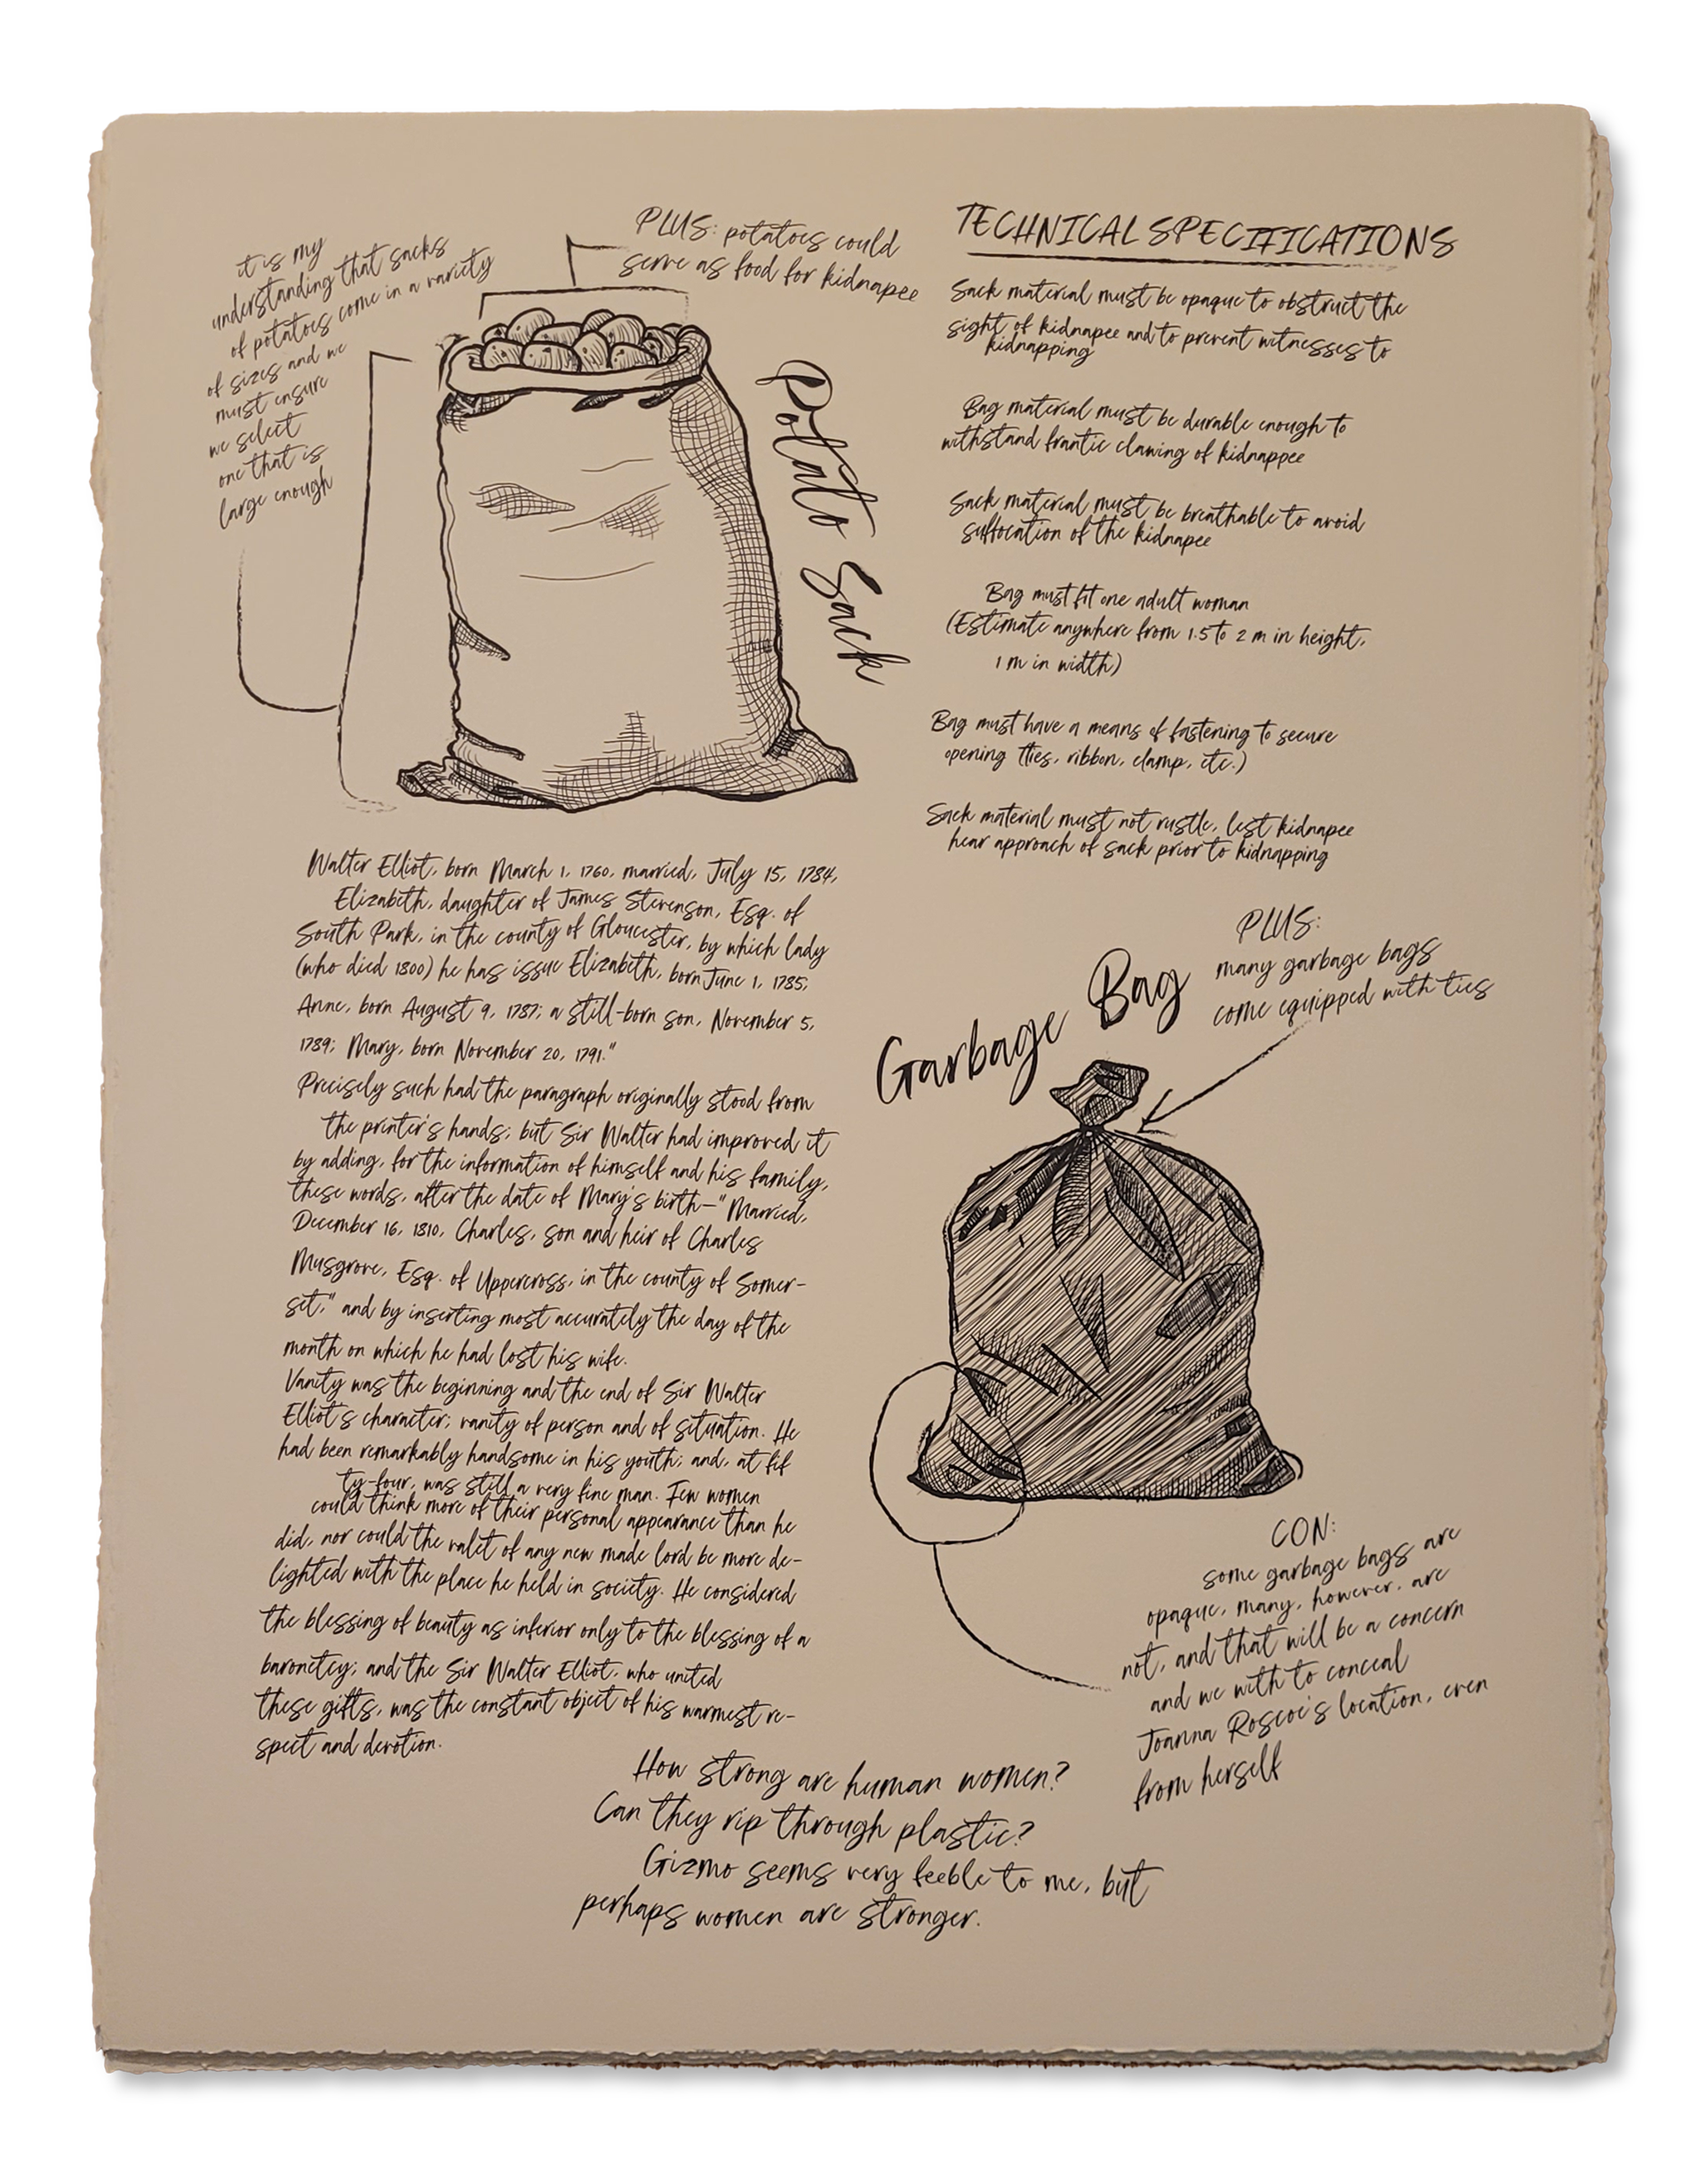 it is my
understanding that sacks
of potatoes come in a variety
of sizes and we
must ensure
we select
one that is
large enough
PLUS: potatoes could
serve as food for kidnapee
Potato Sack
TECHNICAL SPECIFICATIONS
Sack material must be opaque to obstruct the
sight of kidnapee and to prevent witnesses to
kidnapping
Bag material must be durable enough to
withstand frantic clawing of kidnappee
Sack material must be breathable to avoid
suffocation of the kidnapee
Bag must fit one adult woman
(Estimate anywhere from 1.5 to 2 m in height,
1 m in width)
Bag must have a means of fastening to secure
opening (ties, ribbon, clamp, etc.)
Sack material must not rustle, lest kidnapee
hear approach of sack prior to kidnapping
Walter Elliot, born March 1, 1760, married, July 15, 1784,
Elizabeth, daughter of James Stevenson, Esq. of
South Park, in the county of Gloucester, by which lady
(who died 1800) he has issue Elizabeth, born June 1, 1785;
Anne, born August 9, 1787; a still-born son, November 5,
1789; Mary, born November 20, 1791."
Precisely such had the paragraph originally stood from
the printer's hands; but Sir Walter had improved it
by adding, for the information of himself and his family,
these words, after the date of Mary's birth—"Married,
December 16, 1810, Charles, son and heir of Charles
Musgrove, Esq. of Uppercross, in the county of Somer-
set," and by inserting most accurately the day of the
month on which he had lost his wife.
Vanity was the beginning and the end of Sir Walter
Elliot's character; vanity of person and of situation. He
had been remarkably handsome in his youth; and, at fif
ty-four, was still a very fine man. Few women
could think more of their personal appearance than he
did, nor could the valet of any new made lord be more de-
lighted with the place he held in society. He considered
the blessing of beauty as inferior only to the blessing of a
baronetcy; and the Sir Walter Elliot, who united
these gifts, was the constant object of his warmest re-
spect and devotion.
Garbage Bag
PLUS:
many garbage bags
come equipped with ties
CON:
some garbage bags are
opaque, many, however, are
not, and that will be a concern
and we with to conceal
Joanna Roscoe's location, even
from herself
How strong are human women?
Can they rip through plastic?
Gizmo seems very feeble to me, but
perhaps women are stronger.